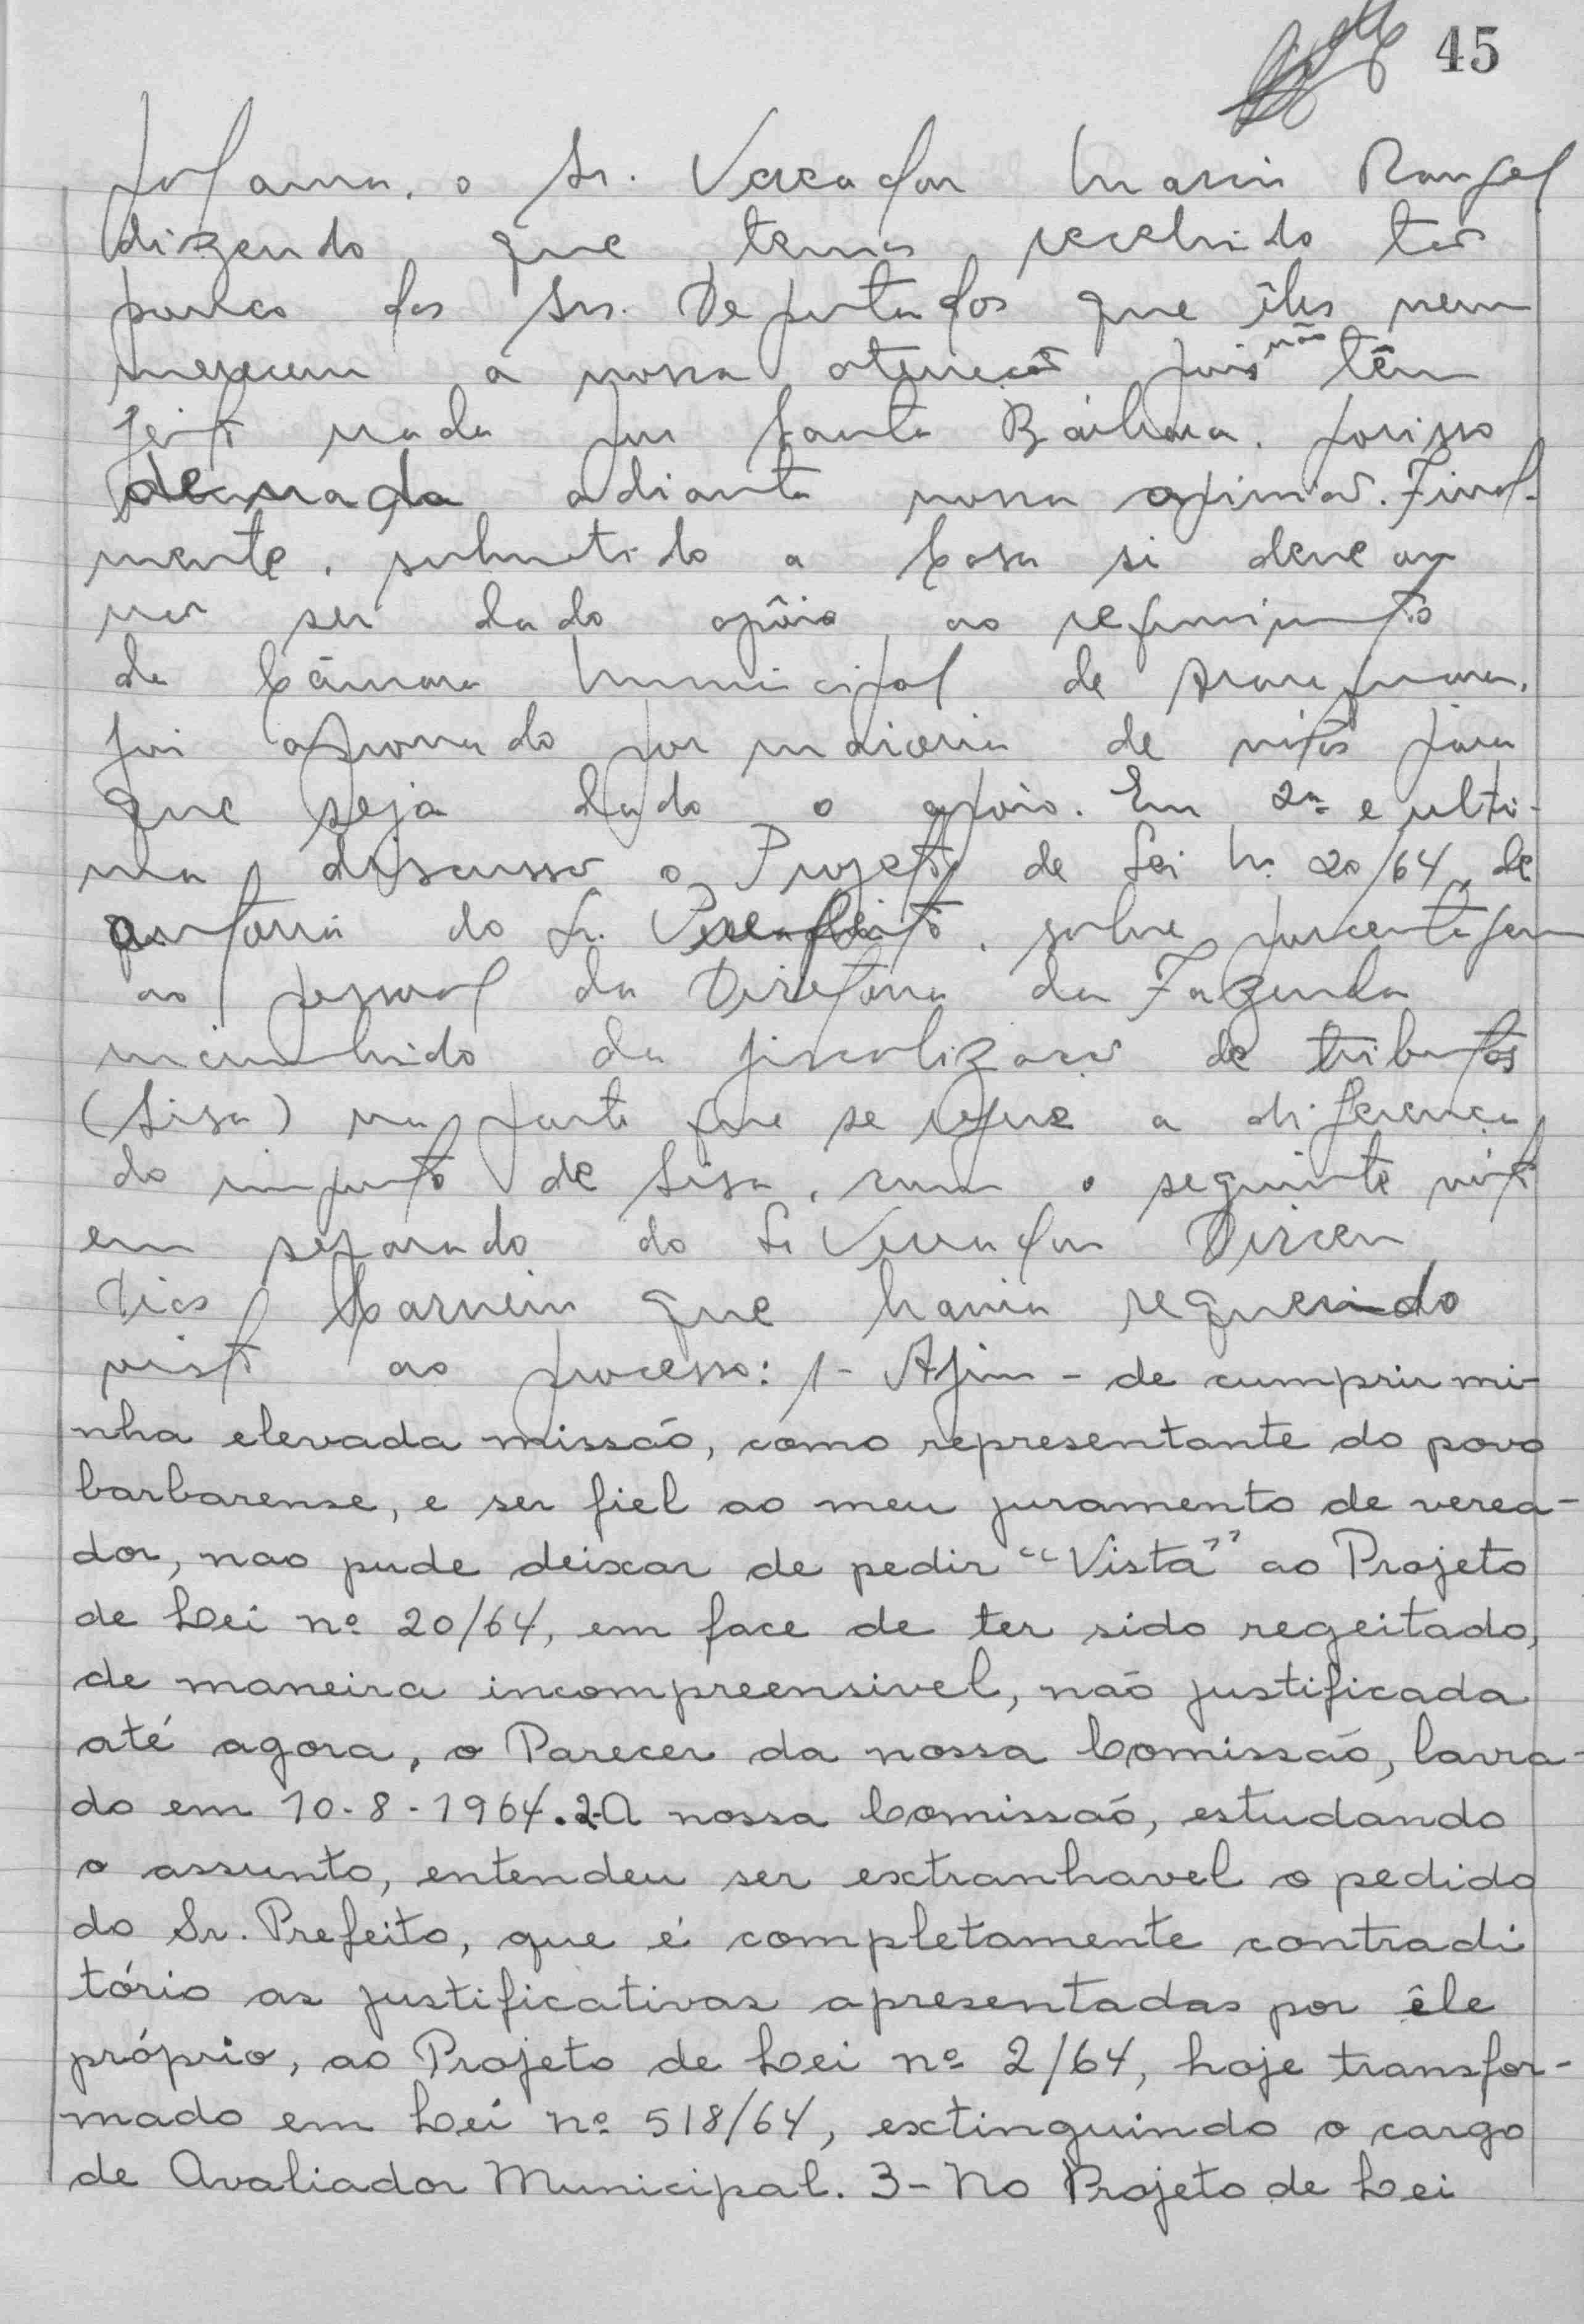 45
o Sr. Vereador Mario Rangel
dizendo que temos recebido tão
pouco dos Srs. Deputados que êles nem
merecem a nossa atenção pois não têm
feito nada por Santa Bárbara, porisso
de nada adianta nossa opinião. Final-
mente, submetido a Casa si deve ou
não ser dado apôio ao requerimento
da Câmara Municipal de Araraquara,
foi aprovado por maioria de votos para
que seja dado o apoio. Em 2a e ulti-
ma discussão o Projeto de Lei No. 20/64, de
autoria do Sr. Prefeito, sobre porcentagem
ao pessoal da Diretoria da Fazenda
incumbido da fiscalização de tributos
(Sisa) na parte que se refere a diferença
do imposto de Sisa, com o seguinte voto
em separado do Sr Vereador Dirceu
Dias Carneiro que havia requerido
vista ao processo: 1- Afim - de cumprir mi-
nha elevada missão, como representante do povo
barbarense, e ser fiel ao meu juramento de verea-
dor, nao pude deixar de pedir "Vista" ao Projeto
de Lei nº 20/64, em face de ter sido regeitado,
de maneira incompreensivel, não justificada
até agora, o Parecer da nossa Comissão, lavra-
do em 10-8-1964. 2-A nossa Comissão, estudando
o assunto, entendeu ser extranhavel o pedido
do Sr. Prefeito, que é completamente contradi
tório as justificativas apresentadas por êle
próprio, ao Projeto de Lei nº 2/64, hoje transfor-
mado em Lei nº 518/64, extinguindo o cargo
de Avaliador Municipal. 3- No Projeto de Lei